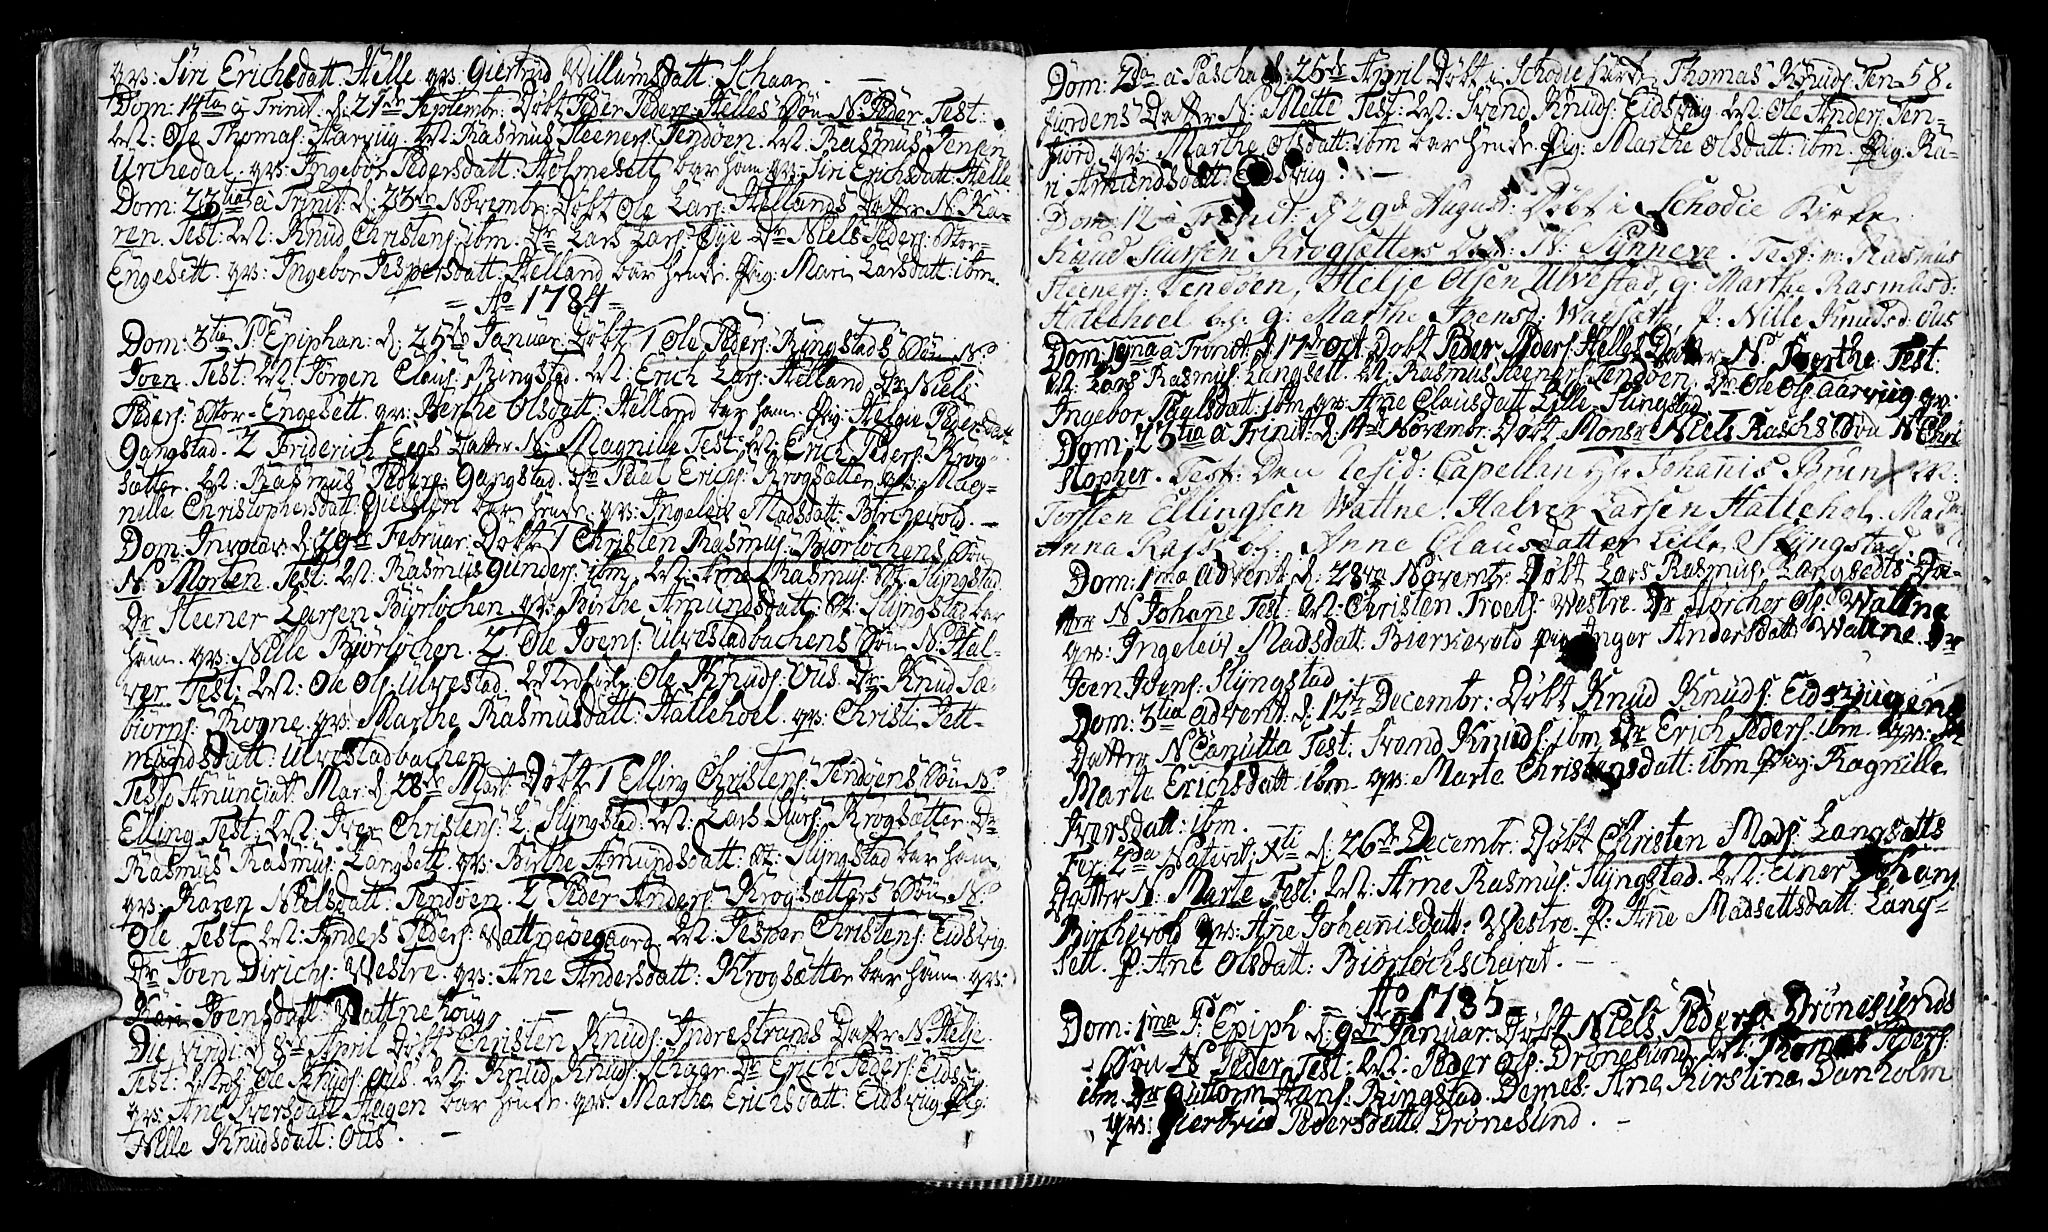 qv: Siri Erichsdatt: Helle qv: Giertrud Willumsdatt: Schaar. —
Dom: 14ta à Trinit. d: 21de Septembr: Døbt Peder Peders: Helles Søn N: Peder Test:
M: Ole Thomas: Harvüg. M: Rasmus Steeners: Tendøen. M: Rasmus Jensen
Urkedal. qv: Ingebor Pedersdatt: Holmesett bar ham qv: Siri Erichsdatt: Helle
Dom: 23tia à Trinit: d: 23de Novembr: Døbt Ole Lars: Hellands Datter N. Ka-
ren. Test: M: Knud Christens: ibm. Dr Lars Lars: Øye Dr Niels Peders: Stor-
Engesett. qv: Ingebor Jespersdatt: Helland bar hende. Pig: Mari Larsdatt: ibm.
= Ao 1784 =
Dom: 3tia P: Epiphan: d: 25de Januar Døbt 1 Ole Peders: Ringstads Søn N:
Joen. Test: M: Jørgen Claus: Ringstad. M: Erich Lars: Helland Dr Niels
Peders: Stor-Engesett. qv: Berthe Olsdatt: Helland bar ham. Pig: Helgie Pedersdatt:
Gangstad. 2 Friderich Eegs Datter N: Magnille Test: M: Erich Peders: Krog-
sætter. M: Rasmus Peders: Gangstad. Dr Paal Erichs: Krogsætter, qv: Mag-
nille Christophersdatt: Gielsten bar hende. qv: Ingeleiv Madsdatt: Birchevold. —
Dom: Invocav: d: 29de Februar: Døbt 1 Christen Rasmus: Biørlochens Søn
N: Morten. Test: M: Rasmus Gunders: ibm. M: Arne Rasmus: St: Slyngstad
Dr Steener Larsen Biørlochen. qv: Birthe Amundsdatt: St: Slyngstad bar
ham. qv: Nille Biørlochen. 2. Ole Joens: Ulvestadbachens Søn N: Hal-
vor Test: M: Ole Ols: Ulvestad. Ole Knuds: Ous. Dr Knud Sæ-
biørns: Rogne. qv: Marthe Rasmusdatt: Hallehoel. qv: Christi Pett-
mandsdatt: Ulvestadbachen
Festo Anunciat: Mar: d: 28de Mart: Døbt 1 Elling Christens: Tendøens Søn N:
Elling Test: M: Iver Christens: L: Slyngstad: M: Lars Siurs: Krogsætter. Dr
Rasmus Rasmus: Langsett. qv: Birthe Amundsdatt: St: Slyngstad bar ham
qv: Karen Nielsdatt: Tendøen. 2 Peder Anders: Krogsætters Søn N:
Ole Test: M: Anders Peders: Wattnegaard M: Jesper Christens: Eidsvig
Dr Joen Dirichs: Westre. qv: Ane Andersdatt: Krogsætter bar ham. qv:
Kari Joensdatt: Wattnehoug —
Die Virid: d: 8de April Døbt Christen Knuds: Indrestrands Datter N: Helje.
Test: Ole Knuds: Ous. M: Knud Knuds: Schaar Dr Erich Peders: Eids-
qv: Ane Iversdatt: Hagen bar hende. qv: Marthe Erichsdatt: Eidsvüg Pig:
Nille Knudsdatt: Ous. —
58.
Dom: 2da à Pascha d: 25de April Døbt i Schodie Kirke Thomas Knuds: Ten-
fiordens Datter N: Mette Test: M: Svend Knuds: Eidsvüg M: Ole Anders: Ten-
fiord. qv: Marthe Olsdatt: ibm bar hende. Pig: Marthe Olsdatt: ibm. Pig: Ka-
ri Amundsdatt: Eidsvüg. —
Dom 12 à Trinit: d 29de August: Døbt i Schodie Kirke
Knud Siursen Krogsetters Dat: N: Synneve. Test: m: Rasmus
Steeners: Tendøen, Helje Olsen Ulvestad, q: Marthe Rasmusd:
Hallehoel og q: Marthe Joensd: Wadset, P: Nille Knudsd: Ous
Dom: 19ma à Trinit. d: 17de Oct. Døbt Peder Peders: Helles Datter N: Berthe. Test.
M: Lars Rasmus: Langsett. M: Rasmus Steeners: Tendøen, Dr Ole Ols: Aarviig qv:
Ingebor Paalsdatt: ibm qv: Ane Clausdatt Lille-Slingstad
Dom: 23tia à Trinit: d: 14de Novembr: Døbt Monsr Niels Raschs Søn N: Chri-
stopher. Test: Den resid: Capellan Hr Johanis Brun M:
Torsten Ellingsen Wattne. Halver Larsen Hallehol. Mad:
Anna Rasch og: Anne Clausdatter Lille Slyngstad.
Dom: 1ma Advent d: 28de Novembr: Døbt Lars Rasmus: Langsetts Da-
tter N Johane Test: M: Christen Troels: Westre. Dr Horcher Ols: Wattne
qv: Ingeleiv Madsdatt: Bierkevold Pig Inger Andersdatt: Wattne. Dr
Joen Joens: Slyngstad.
Dom: 3tia Advent: d: 12te Decembr: Døbt Knud Knuds: Eidsvügens
Datter N Canutta Test: Svend Knuds: ibm Dr Erich Peders: ibm. qv:
Marte Erichsdatt: ibm qv: Marte Christensdatt: ibm Pig: Ragnille
Iversdatt: ibm.
Fer: 2da Nativit: Xti d: 26de Decembr: Døbt Christen Mads: Langsætts
Datter N: Marte Test: M: Arne Rasmus: Slyngstad. M: Einer Johans:
Birchevold qv: Ane Johannisdatt: Westre. P: Ane Madsettsdatt: Lang-
sett. P: Ane Olsdatt: Biørlochscheivet. —
Ao 1785 =
Dom: 1ma P: Epiph: d: 9de Januar: Døbt Niels Peders: Drønesunds
Søn N: Peder Test: M: Peder Ols: Drønesund. M: Thomas Peders:
ibm. Dr Guttorm Hans: Ringstad. Demes: Ane Kirstina Danholm
qv: Giertrud Pedersdatt: Drønesund. —